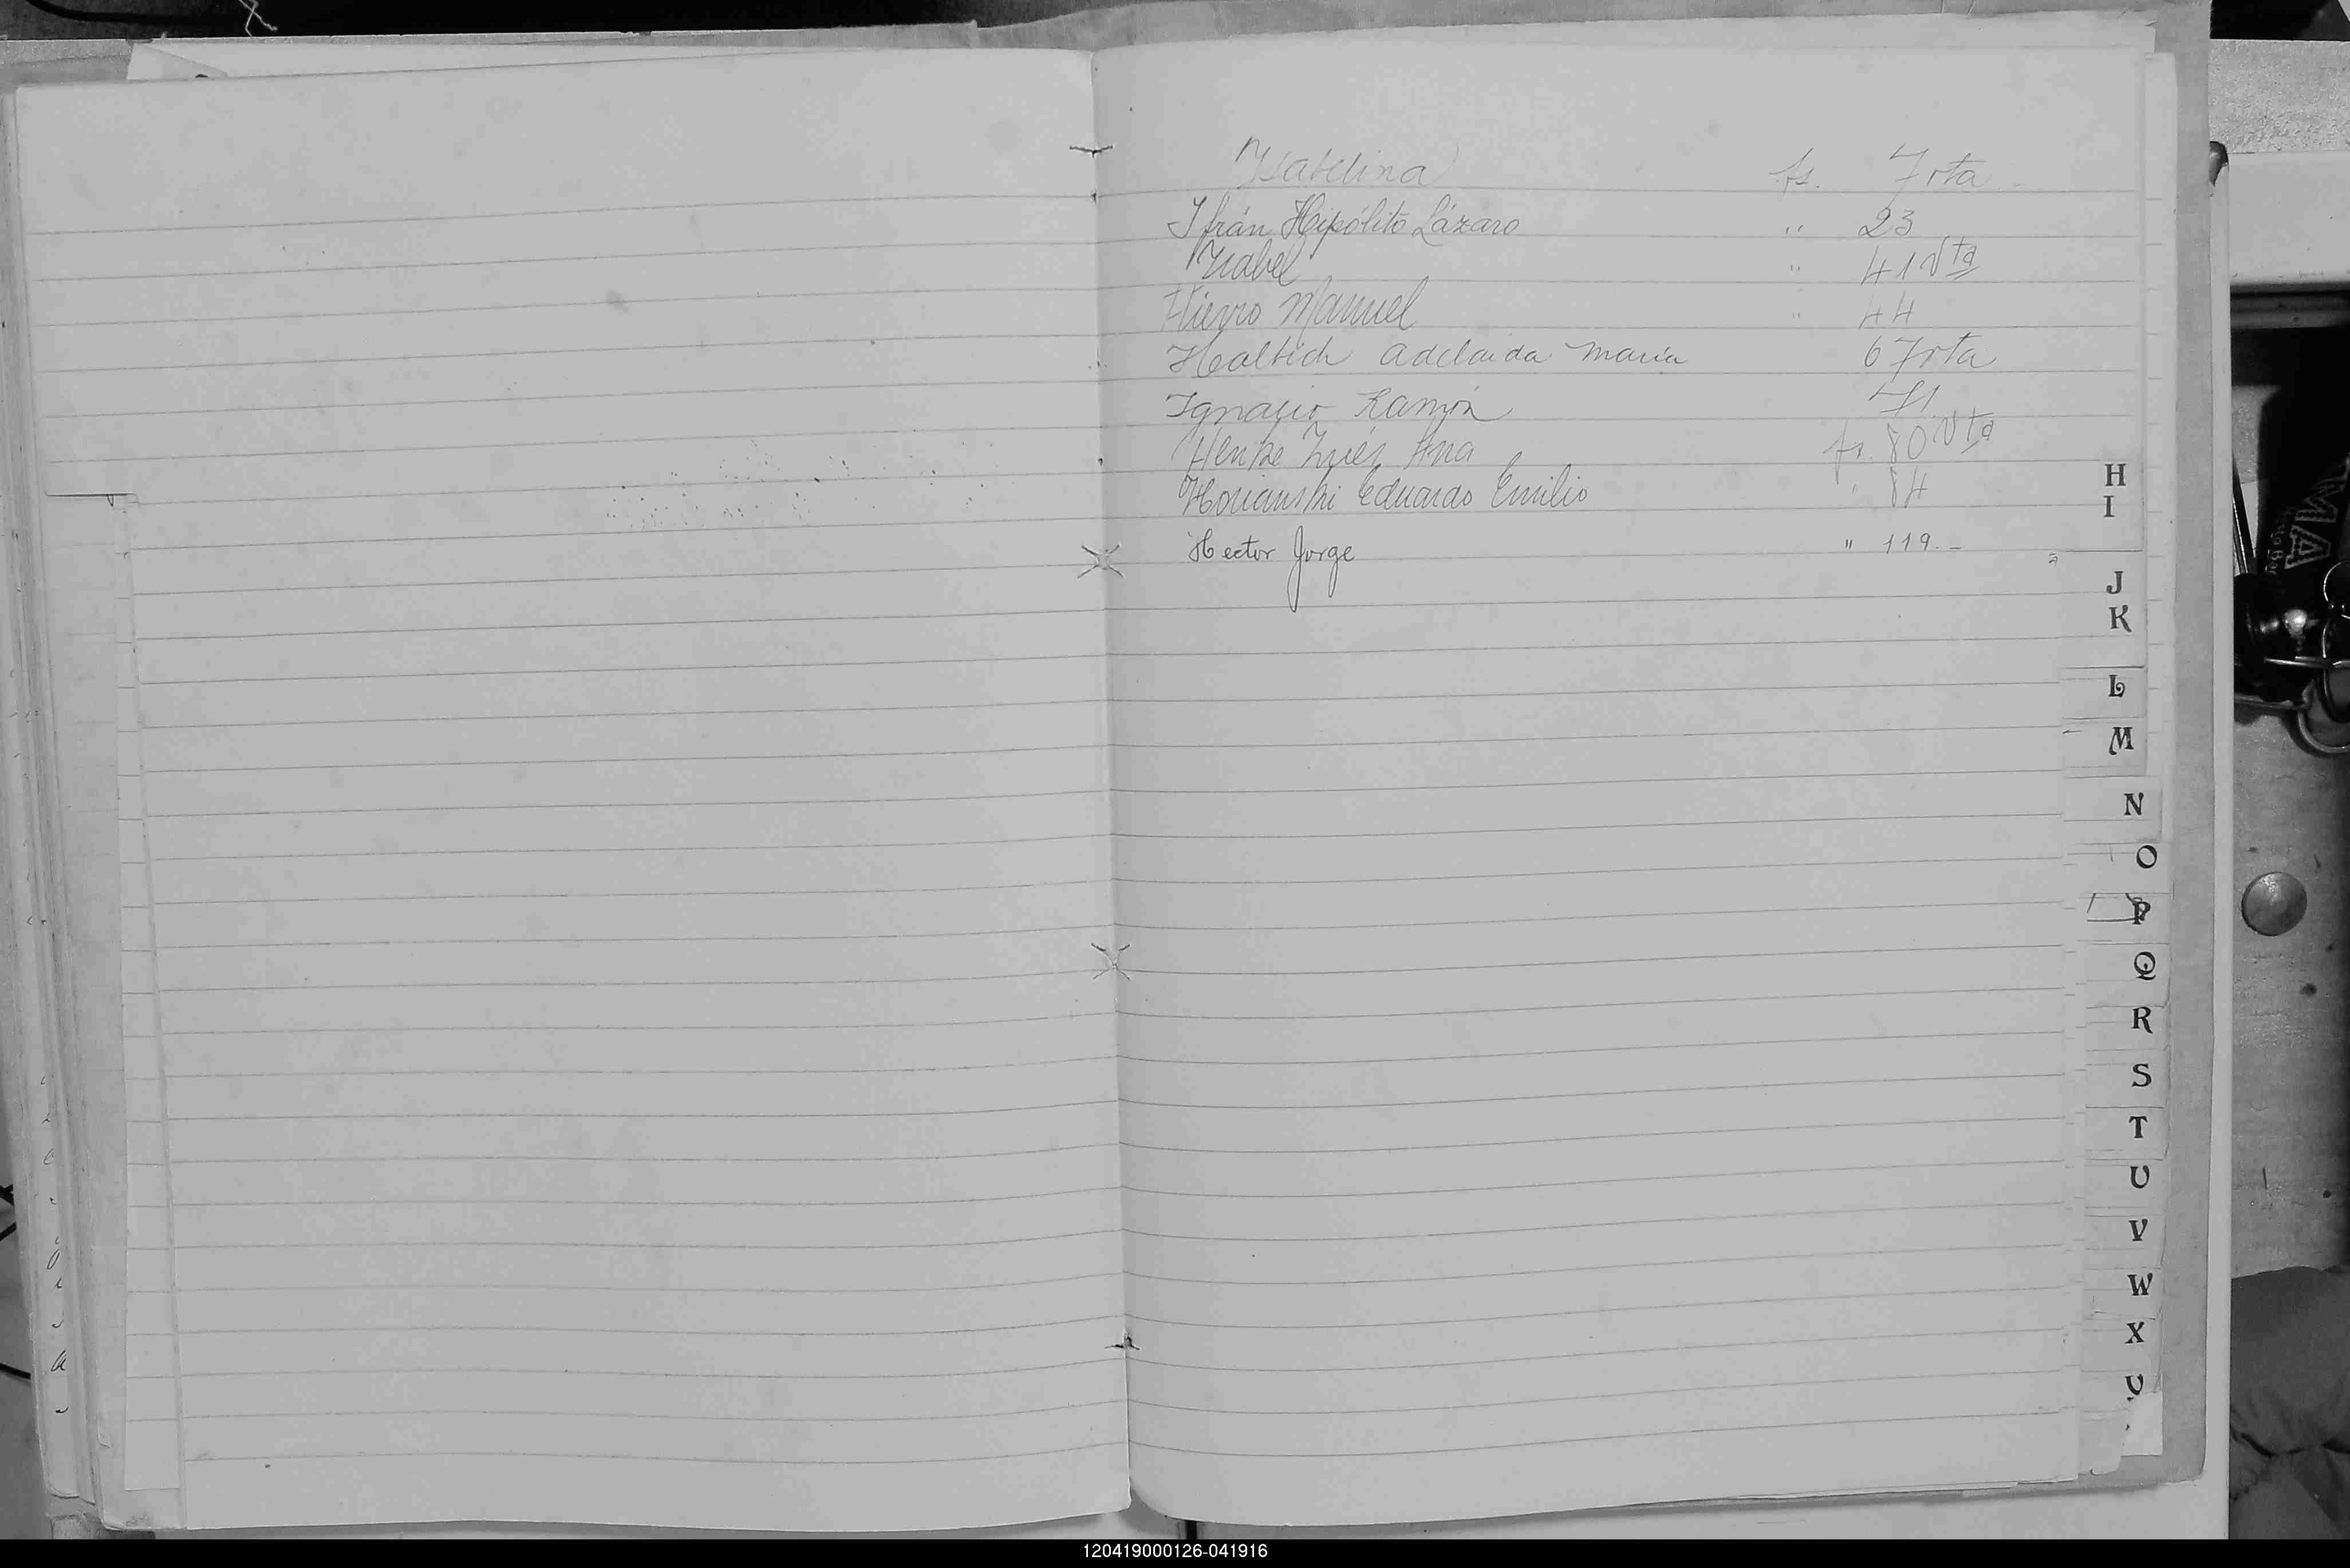 Isabelina fs. 7 vta
Ifrán Hipólito Lázaro " 23
Isabel " 41 Vta
Hierro Manuel " 44
Holtich Adelaida Maria 67 vta
Ignacio Ramón 71
Henke Inés Ana fs. 80 Vta
Horianski Eduardo Emilio " 84
Hector Jorge " 119.-
H
I
J
K
L
M
N
O
P
Q
R
S
T
U
V
W
X
120419000126-041916